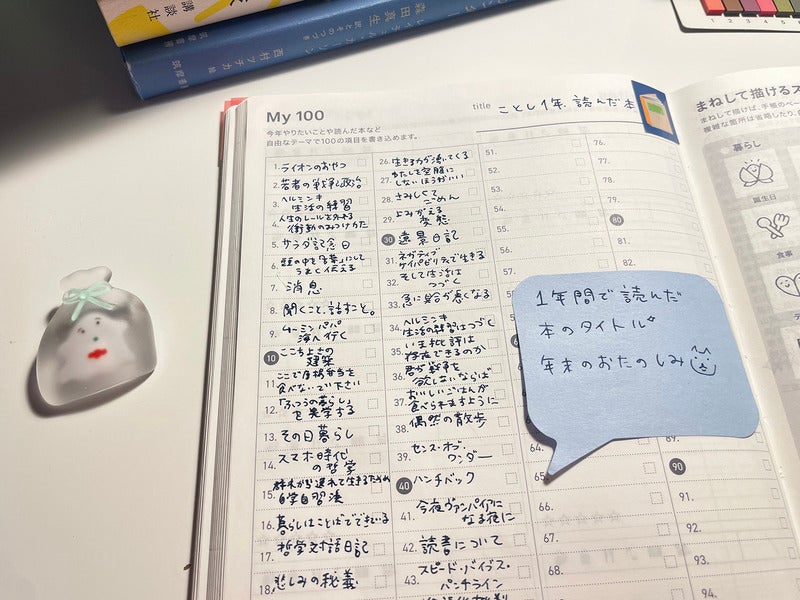 講談社
筑摩書房
西村ツチカ 絵
森田真生
レイチェル・カーソン
1 2 3 4 5
My 100
今年やりたいことや読んだ本など
自由なテーマで100の項目を書き込めます。
title ことし1年、読んだ本
1. ライオンのおやつ
2. 若者の戦争と政治
3. ヘルシンキ
生活の練習
4. 人生のレールを外れる
衝動のみつけかた
5. サラダ記念日
6. 頭の中を「言葉」にして
うまく伝える
7. 消息
8. 聞くこと、話すこと。
9. ムーミンパパ
海へ行く
10 ここちよさの
建築
11. ここで唐揚弁当を
食べないで下さい
12. 「ふつうの暮らし」
を美学する
13. その日暮らし
14. スマホ時代
の哲学
15. 群れから逸れて生きるための
自学自習法
16. 暮らしはことばでできている
17. 哲学対話日記
18. 悲しみの秘義
26. 生きる力が湧いてくる
27. わたしを空腹に
しないほうがいい
28. さみしくて
ごめん
29. よみがえる
変態
30 遠景日記
31. ネガティブ
ケイパビリティで生きる
32. そして生活は
つづく
33. 急に具合が悪くなる
34. ヘルシンキ
生活の練習はつづく
35. いま批評は
存在できるのか
36. 君が戦争を
欲しないならば
37. おいしいごはんが
食べられますように
38. 偶然の散歩
39. センス・オブ・
ワンダー
40 ハンチバック
41. 今夜ヴァンパイアに
なる前に
42. 読書について
43. スピード・バイブス・
パンチライン
51.
52.
53.
54.
55.
56.
57.
65.
66.
67.
68.
76.
77.
78.
79.
80
81.
82.
89.
90
91.
92.
93.
94.
1年間で読んだ
本のタイトル
年末のおたのしみ
まねして描けるス
まねして描けば、手帳のペー
複雑な箇所は省略したり、
暮らし
誕生日
食事